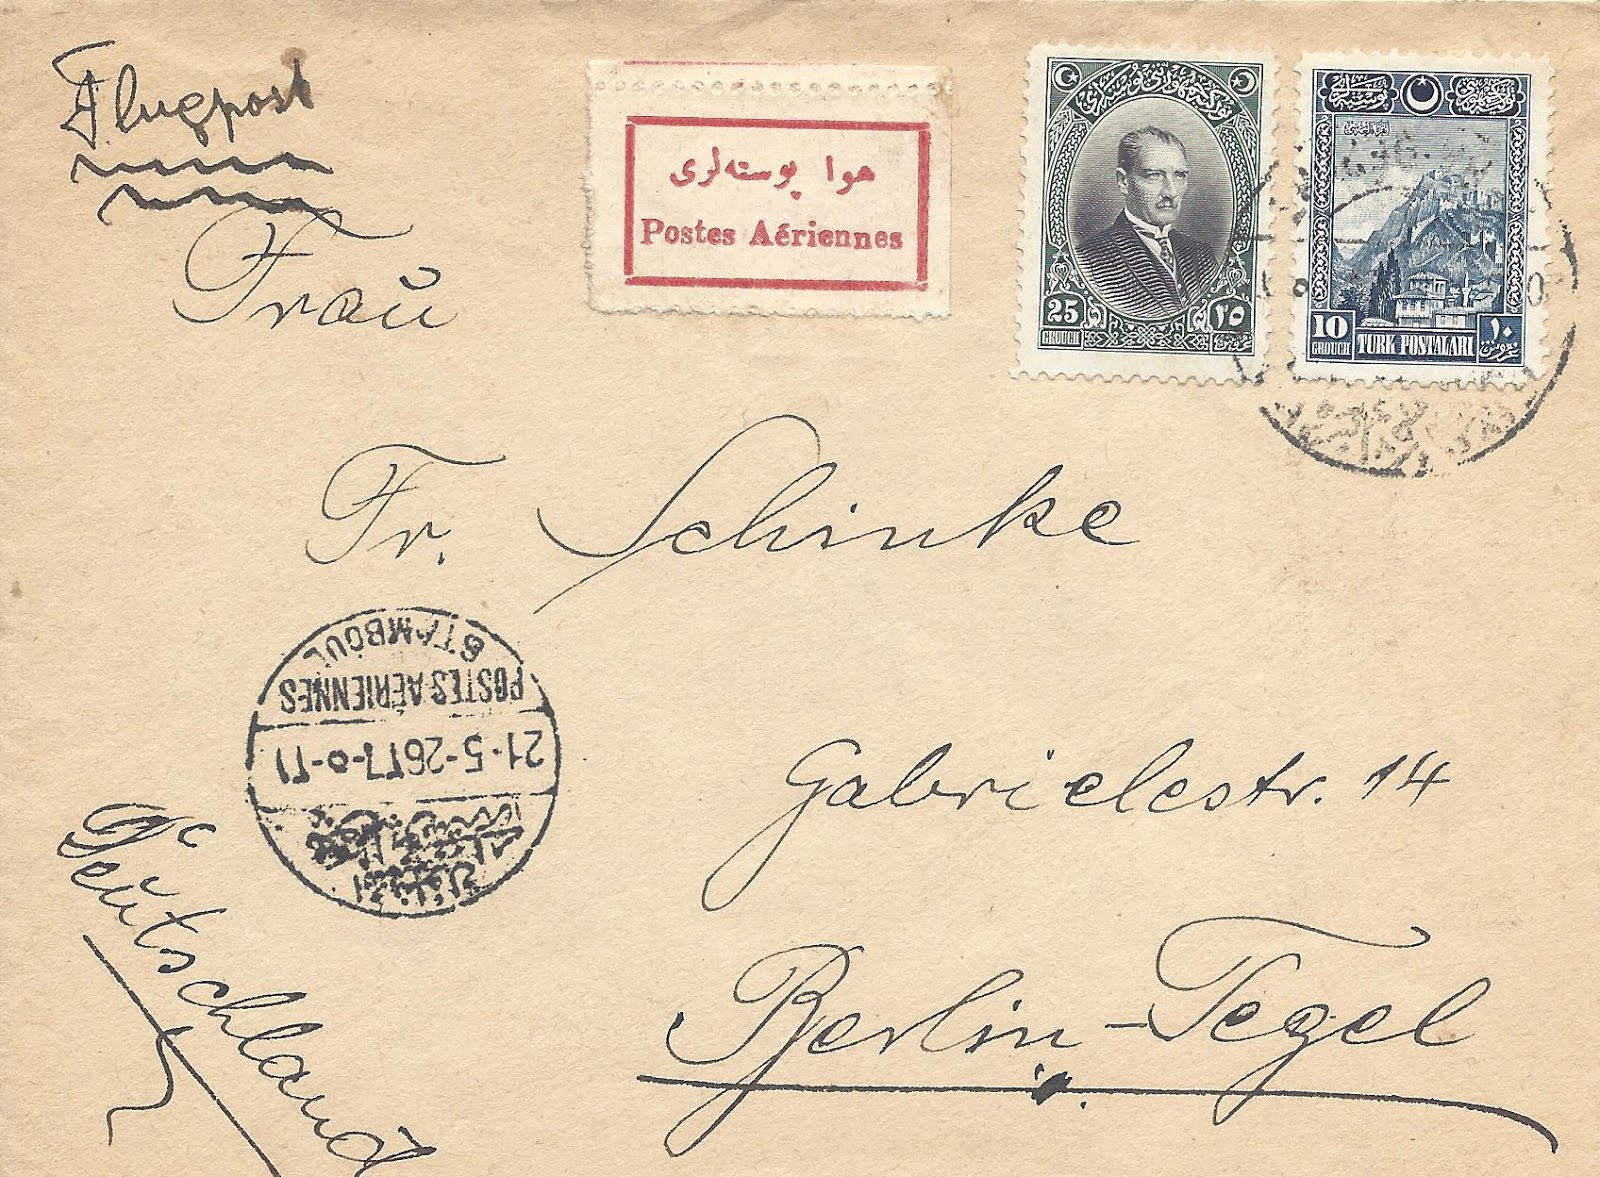 Flugpost
هوا پوسته‌لری
Postes Aériennes
25
GROUCH
٢٥
غروش
10
GROUCH
TURK POSTALARI
١٠
غروش
Frau
Fr. Schinke
STAMBOUL
POSTES AÉRIENNES
21-5-26
Gabrielestr. 14
Berlin-Tegel
Deutschland